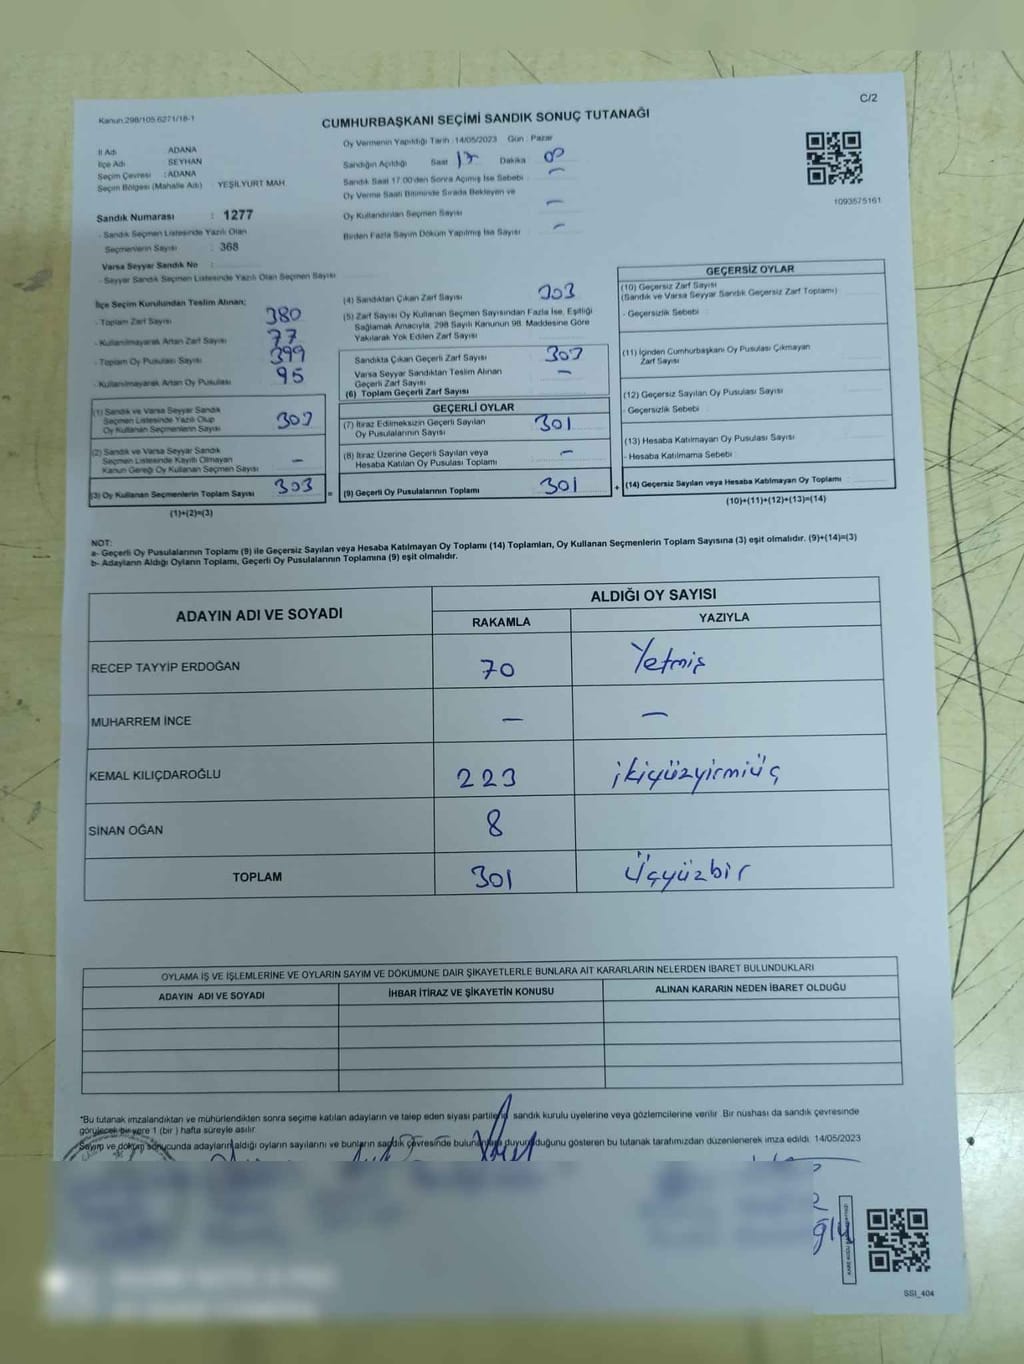 Kanun:298/105 6271/18-1
C/2
CUMHURBAŞKANI SEÇİMİ SANDIK SONUÇ TUTANAĞI
İl Adı ADANA
İlçe Adı SEYHAN
Seçim Çevresi : ADANA
Seçim Bölgesi (Mahalle Adı) : YEŞİLYURT MAH.
Sandık Numarası : 1277
- Sandık Seçmen Listesinde Yazılı Olan
Seçmenlerin Sayısı : 368
Varsa Seyyar Sandık No :
- Seyyar Sandık Seçmen Listesinde Yazılı Olan Seçmen Sayısı
Oy Vermenin Yapıldığı Tarih : 14/05/2023 Gün : Pazar
Sandığın Açıldığı Saat 17 Dakika 00
Sandık Saat 17:00'den Sonra Açılmış İse Sebebi : —
Oy Verme Saati Bitiminde Sırada Bekleyen ve
Oy Kullandırılan Seçmen Sayısı —
Birden Fazla Sayım Döküm Yapılmış İse Sayısı —
1093575161
İlçe Seçim Kurulundan Teslim Alınan;
- Toplam Zarf Sayısı 380
- Kullanılmayarak Artan Zarf Sayısı 77
- Toplam Oy Pusulası Sayısı 399
- Kullanılmayarak Artan Oy Pusulası 95
(1) Sandık ve Varsa Seyyar Sandık
Seçmen Listesinde Yazılı Olup
Oy Kullanan Seçmenlerin Sayısı 303
(2) Sandık ve Varsa Seyyar Sandık
Seçmen Listesinde Kayıtlı Olmayan
Kanun Gereği Oy Kullanan Seçmen Sayısı —
(3) Oy Kullanan Seçmenlerin Toplam Sayısı 303 =
(1)+(2)=(3)
(4) Sandıktan Çıkan Zarf Sayısı 303
(5) Zarf Sayısı Oy Kullanan Seçmen Sayısından Fazla İse, Eşitliği
Sağlamak Amacıyla, 298 Sayılı Kanunun 98. Maddesine Göre
Yakılarak Yok Edilen Zarf Sayısı
Sandıkta Çıkan Geçerli Zarf Sayısı 303
Varsa Seyyar Sandıktan Teslim Alınan
Geçerli Zarf Sayısı —
(6) Toplam Geçerli Zarf Sayısı
GEÇERLİ OYLAR
(7) İtiraz Edilmeksizin Geçerli Sayılan
Oy Pusulalarının Sayısı 301
(8) İtiraz Üzerine Geçerli Sayılan veya
Hesaba Katılan Oy Pusulası Toplamı —
(9) Geçerli Oy Pusulalarının Toplamı 301 +
GEÇERSİZ OYLAR
(10) Geçersiz Zarf Sayısı
(Sandık ve Varsa Seyyar Sandık Geçersiz Zarf Toplamı)
- Geçersizlik Sebebi :
(11) İçinden Cumhurbaşkanı Oy Pusulası Çıkmayan
Zarf Sayısı
(12) Geçersiz Sayılan Oy Pusulası Sayısı
- Geçersizlik Sebebi
(13) Hesaba Katılmayan Oy Pusulası Sayısı
- Hesaba Katılmama Sebebi :
(14) Geçersiz Sayılan veya Hesaba Katılmayan Oy Toplamı :
(10)+(11)+(12)+(13)=(14)
NOT:
a- Geçerli Oy Pusulalarının Toplamı (9) ile Geçersiz Sayılan veya Hesaba Katılmayan Oy Toplamı (14) Toplamları, Oy Kullanan Seçmenlerin Toplam Sayısına (3) eşit olmalıdır. (9)+(14)=(3)
b- Adayların Aldığı Oyların Toplamı, Geçerli Oy Pusulalarının Toplamına (9) eşit olmalıdır.
ADAYIN ADI VE SOYADI ALDIĞI OY SAYISI
RAKAMLA YAZIYLA
RECEP TAYYİP ERDOĞAN 70 Yetmiş
MUHARREM İNCE — —
KEMAL KILIÇDAROĞLU 223 ikiyüzyirmiüç
SİNAN OĞAN 8
TOPLAM 301 Üçyüzbir
OYLAMA İŞ VE İŞLEMLERİNE VE OYLARIN SAYIM VE DÖKÜMÜNE DAİR ŞİKAYETLERLE BUNLARA AİT KARARLARIN NELERDEN İBARET BULUNDUKLARI
ADAYIN ADI VE SOYADI İHBAR İTİRAZ VE ŞİKAYETİN KONUSU ALINAN KARARIN NEDEN İBARET OLDUĞU
*Bu tutanak imzalandıktan ve mühürlendikten sonra seçime katılan adayların ve talep eden siyasi partilerin sandık kurulu üyelerine veya gözlemcilerine verilir. Bir nüshası da sandık çevresinde
görülecek bir yere 1 (bir) hafta süreyle asılır.
Sayım ve döküm sonucunda adayların aldığı oyların sayılarını ve bunların sandık çevresinde duyurulduğunu gösteren bu tutanak tarafımızdan düzenlenerek imza edildi. 14/05/2023
SSI_404